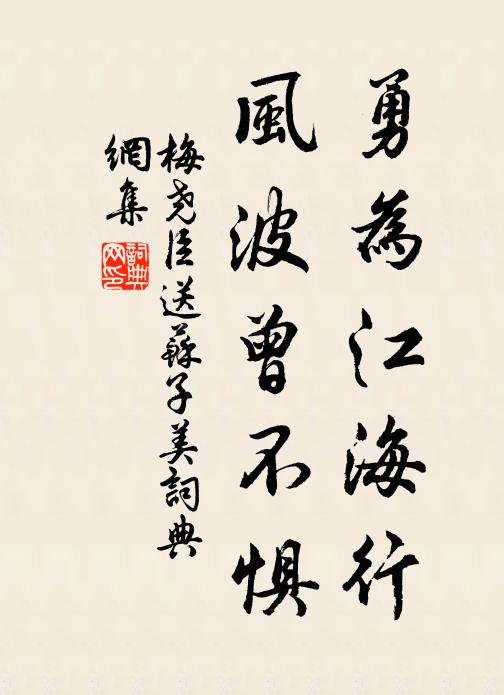 勇為江海行
風波曾不惧
梅尧臣送蘇子美詞典
網集
詞典网印